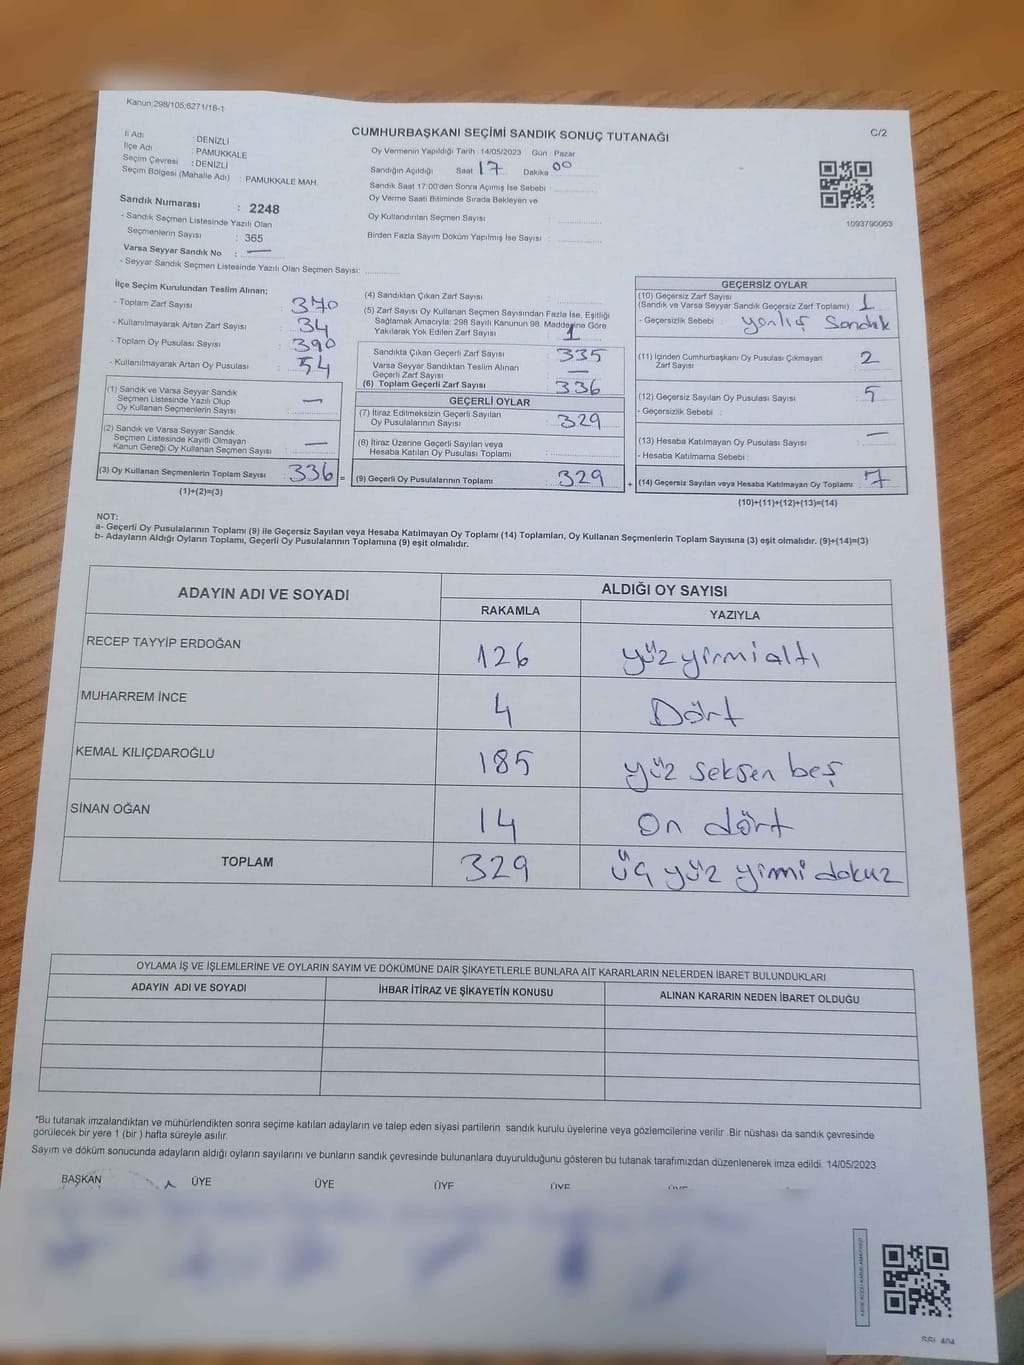 Kanun:298/105;6271/18-1
CUMHURBAŞKANI SEÇİMİ SANDIK SONUÇ TUTANAĞI
C/2
İl Adı : DENİZLİ
İlçe Adı : PAMUKKALE
Seçim Çevresi : DENİZLİ
Seçim Bölgesi (Mahalle Adı) : PAMUKKALE MAH.
Oy Vermenin Yapıldığı Tarih : 14/05/2023 Gün : Pazar
Sandığın Açıldığı Saat 17 Dakika 00
Sandık Saat 17:00'den Sonra Açımış İse Sebebi :
Oy Verme Saati Bitiminde Sırada Bekleyen ve
Oy Kullandırılan Seçmen Sayısı :
Birden Fazla Sayım Döküm Yapılmış İse Sayısı :
1093790063
Sandık Numarası : 2248
- Sandık Seçmen Listesinde Yazılı Olan
Seçmenlerin Sayısı : 365
Varsa Seyyar Sandık No : —
- Seyyar Sandık Seçmen Listesinde Yazılı Olan Seçmen Sayısı:
İlçe Seçim Kurulundan Teslim Alınan;
- Toplam Zarf Sayısı 370
- Kullanılmayarak Artan Zarf Sayısı : 34
- Toplam Oy Pusulası Sayısı : 390
- Kullanılmayarak Artan Oy Pusulası : 54
(1) Sandık ve Varsa Seyyar Sandık
Seçmen Listesinde Yazılı Olup
Oy Kullanan Seçmenlerin Sayısı : —
(2) Sandık ve Varsa Seyyar Sandık
Seçmen Listesinde Kayıtlı Olmayan
Kanun Gereği Oy Kullanan Seçmen Sayısı : —
(3) Oy Kullanan Seçmenlerin Toplam Sayısı : 336 =
(1)+(2)=(3)
(4) Sandıktan Çıkan Zarf Sayısı :
(5) Zarf Sayısı Oy Kullanan Seçmen Sayısından Fazla İse, Eşitliği
Sağlamak Amacıyla; 298 Sayılı Kanunun 98. Maddesine Göre
Yakılarak Yok Edilen Zarf Sayısı : 1
Sandıkta Çıkan Geçerli Zarf Sayısı : 335
Varsa Seyyar Sandıktan Teslim Alınan
Geçerli Zarf Sayısı : —
(6) Toplam Geçerli Zarf Sayısı : 336
GEÇERLİ OYLAR
(7) İtiraz Edilmeksizin Geçerli Sayılan
Oy Pusulalarının Sayısı : 329
(8) İtiraz Üzerine Geçerli Sayılan veya
Hesaba Katılan Oy Pusulası Toplamı :
(9) Geçerli Oy Pusulalarının Toplamı : 329 +
GEÇERSİZ OYLAR
(10) Geçersiz Zarf Sayısı
(Sandık ve Varsa Seyyar Sandık Geçersiz Zarf Toplamı) : 1
- Geçersizlik Sebebi : yanlış Sandık
(11) İçinden Cumhurbaşkanı Oy Pusulası Çıkmayan
Zarf Sayısı : 2
(12) Geçersiz Sayılan Oy Pusulası Sayısı : 5
- Geçersizlik Sebebi :
(13) Hesaba Katılmayan Oy Pusulası Sayısı : —
- Hesaba Katılmama Sebebi :
(14) Geçersiz Sayılan veya Hesaba Katılmayan Oy Toplamı : 7
(10)+(11)+(12)+(13)=(14)
NOT:
a- Geçerli Oy Pusulalarının Toplamı (9) ile Geçersiz Sayılan veya Hesaba Katılmayan Oy Toplamı (14) Toplamları, Oy Kullanan Seçmenlerin Toplam Sayısına (3) eşit olmalıdır. (9)+(14)=(3)
b- Adayların Aldığı Oyların Toplamı, Geçerli Oy Pusulalarının Toplamına (9) eşit olmalıdır.
ADAYIN ADI VE SOYADI ALDIĞI OY SAYISI
RAKAMLA YAZIYLA
RECEP TAYYİP ERDOĞAN 126 yüz yirmi altı
MUHARREM İNCE 4 Dört
KEMAL KILIÇDAROĞLU 185 yüz seksen beş
SİNAN OĞAN 14 on dört
TOPLAM 329 üç yüz yirmi dokuz
OYLAMA İŞ VE İŞLEMLERİNE VE OYLARIN SAYIM VE DÖKÜMÜNE DAİR ŞİKAYETLERLE BUNLARA AİT KARARLARIN NELERDEN İBARET BULUNDUKLARI
ADAYIN ADI VE SOYADI İHBAR İTİRAZ VE ŞİKAYETİN KONUSU ALINAN KARARIN NEDEN İBARET OLDUĞU
*Bu tutanak imzalandıktan ve mühürlendikten sonra seçime katılan adayların ve talep eden siyasi partilerin sandık kurulu üyelerine veya gözlemcilerine verilir .Bir nüshası da sandık çevresinde
görülecek bir yere 1 (bir ) hafta süreyle asılır.
Sayım ve döküm sonucunda adayların aldığı oyların sayılarını ve bunların sandık çevresinde bulunanlara duyurulduğunu gösteren bu tutanak tarafımızdan düzenlenerek imza edildi. 14/05/2023
BAŞKAN ÜYE ÜYE ÜYE ÜYE ÜYE